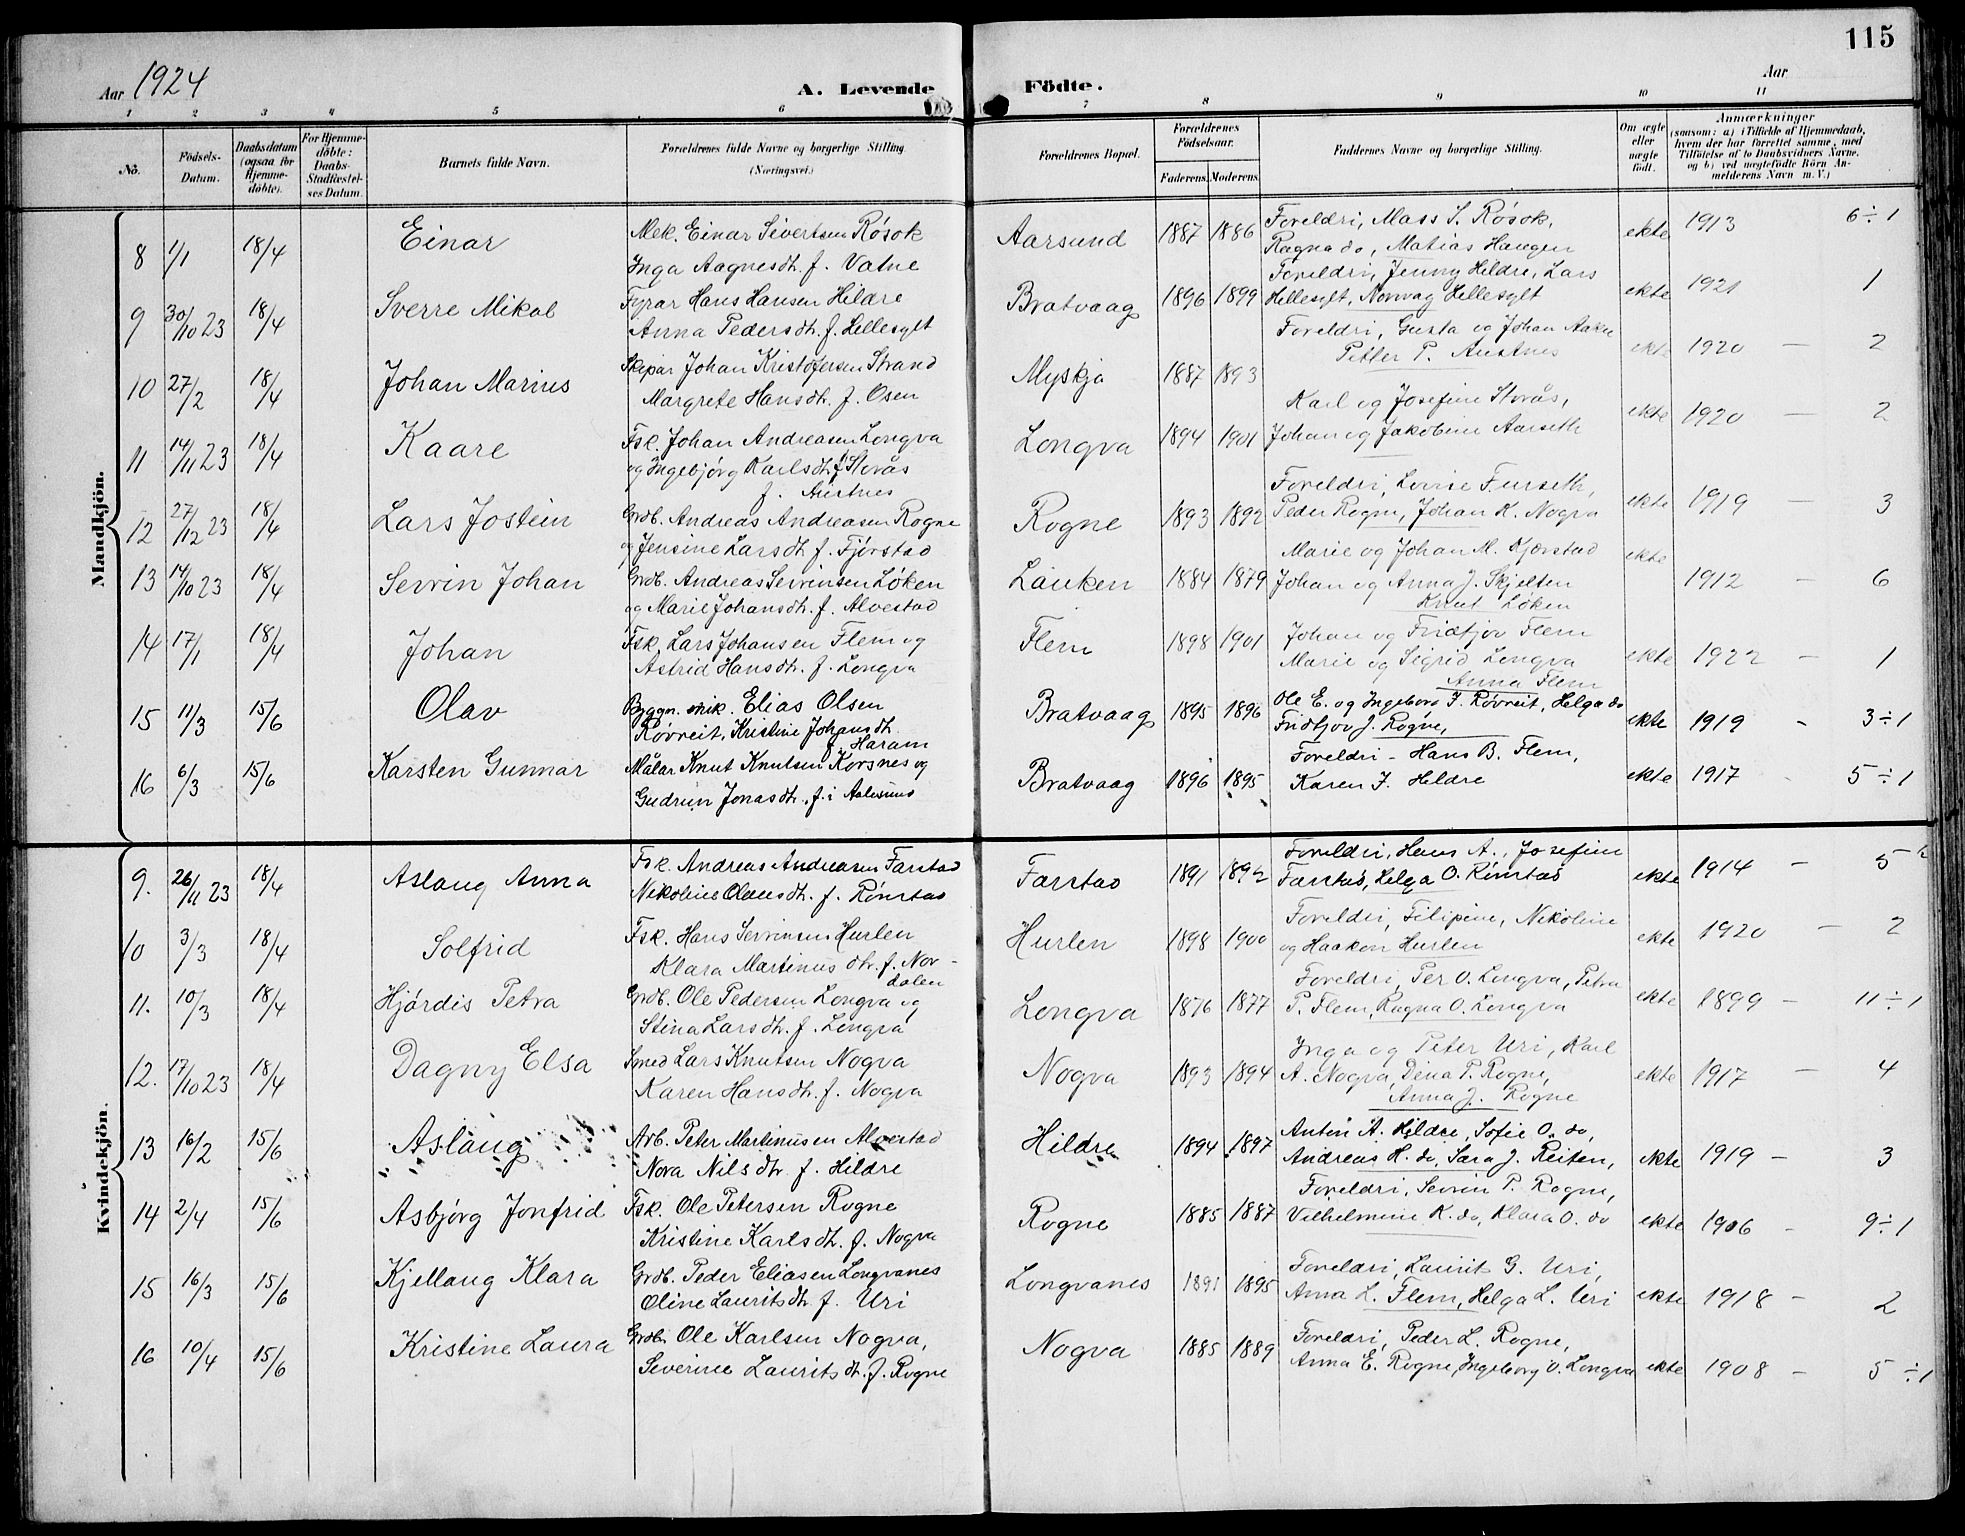 115
Aar 1924
A. Levende Födte.
Aar
1 2 3 4 5 6 7 8 9 10 11
No.
Födsels-Datum.
Daabsdatum (ogsaa for Hjemme-döbte).
For Hjemme-döbte: Daabs-Stadfæstel-ses Datum.
Barnets fulde Navn.
Forældrenes fulde Navne og borgerlige Stilling (Næringsvei.)
Forældrenes Bopæl.
Forældrenes Födselsaar.
Faderens. Moderens.
Faddernes Navne og borgerlige Stilling.
Om ægte eller uægte födt.
Anmærkninger
(saasom: a) i Tilfælde af Hjemmedaab, hvem der har forrettet samme, med Tilföielse af to Daabsvidners Navne, og b) ved uægtefödte Börn An-melderens Navn m. V.)
Mandkjön.
8 1/1 18/4 Einar Mek. Einar Sivertsen Røsok Aarsund 1887 1886 Foreldri, Mass S. Røsok, ekte 1913 6÷1
Inga Aagnesdtr. f. Vatne Ragna do, Matias Haugen
9 30/10 23 18/4 Sverre Mikal Fyrar Hans Hansen Hildre Bratvaag 1896 1899 Foreldri, Jenny Hildre, Lars ekte 1921 1
Anna Pedersdtr. f. Hellesylt Hellesylt, Norvag Hellesylt
10 27/2 18/4 Johan Marius Skipar Johan Kristofersen Strand Myskja 1887 1893 Foreldri, Gusta og Johan Aakre ekte 1920 — 2
Margrete Hansdtr. f. Osen Petter P. Austnes
11 14/11 23 18/4 Kaare Fsk. Johan Andreasen Longva Longva 1894 1901 Karl og Josefine Storås, ekte 1920 — 2
og Ingebjørg Karlsdtr. f. Storås Johan og Jakobine Aarseth
f. Austnes
12 27/12 23 18/4 Lars Jostein Grdb. Andreas Andreasen Rogne Rogne 1893 1892 Foreldri, Lovise Furseth, ekte 1919 — 3
og Jensine Larsdtr. f. Fjørstad Peder Rogne, Johan K. Nogva
13 14/10 23 18/4 Sevrin Johan Grdb. Andreas Sevrinsen Løken Lauken 1884 1879 Marie og Johan M. Kjærstad ekte 1912 — 6
og Marie Johansdtr. f. Alvestad Johan og Anna J. Skjelten
Knut Løken
14 17/1 18/4 Johan Fsk. Lars Johansen Flem og Flem 1898 1901 Johan og Fridtjov Flem ekte 1922 — 1
Astrid Hansdtr. f. Longva Marie og Sigrid Longva
Anna Flem
15 11/3 15/6 Olav Byggn. snik. Elias Olsen Bratvaag 1895 1896 Ole E. og Ingeborg J. Røvreit, Helga do ekte 1919 - 3÷1
Røvreit, Kristine Johansdtr. Fridtjov J. Rogne,
f. Haram
16 6/3 15/6 Karsten Gunnar Målar Knut Knutsen Korsnes og Bratvaag 1896 1895 Foreldri - Hans B. Flem, ekte 1917 - 5÷1
Gudrun Jonasdtr., f. i Aalesund Karen J. Hildre
Kvindekjön.
9. 26/11 23 18/4 Aslaug Anna Fsk. Andreas Andreasen Farstad Farstad 1891 1892 Foreldri, Hans A., Josefine ekte 1914 — 5
Nikoline Olausdtr. f. Rønstad Farstad, Helga O. Rønstad
10 3/3 18/4 Solfrid Fsk. Hans Sevrinsen Hurlen Hurlen 1898 1900 Foreldri, Filipine, Nikoline ekte 1920 — 2
Klara Martinusdtr. f. Nor- og Haakon Hurlen
dalen
11. 10/3 18/4 Hjørdis Petra Grdb. Ole Pedersen Longva og Longva 1876 1877 Foreldri, Per O. Longva, Petra ekte 1899 — 11÷1
Stina Larsdtr. f. Longva P. Flem, Ragna O. Longva
12. 17/10 23 18/4 Dagny Elsa Smed Lars Knutsen Nogva Nogva 1893 1894 Inga og Peter Uri, Karl ekte 1917 — 4
Karen Hansdtr. f. Nogva A. Nogva, Dina P. Rogne,
Anna J. Rogne
13 16/2 15/6 Aslaug Arb. Peter Martinusen Alvestad Hildre 1894 1897 Anton A. Hildre, Sofie O. do, ekte 1919 — 3
Nora Nilsdtr f. Hildre Andreas H. do, Sara J. Reiten,
14 2/4 15/6 Asbjørg Jonfrid Fsk. Ole Petersen Rogne Rogne 1885 1887 Foreldri, Sevrin P. Rogne, ekte 1906 - 9÷1
Kristine Karlsdtr. f. Nogva Vilhelmine K. do, Klara O. do
15 16/3 15/6 Kjellaug Klara Grdb. Peder Eliasen Longvanes Longvanes 1891 1895 Foreldri, Laurits G. Uri, ekte 1918 - 2
Oline Lauritsdtr. f. Uri Anna L. Flem, Helga L. Uri
16 10/4 15/6 Kristine Laura Grdb. Ole Karlsen Nogva, Nogva 1885 1889 Foreldri, Peder L. Rogne, ekte 1908 — 5÷1
Severine Lauritsdtr. f. Rogne Anna E. Rogne, Ingeborg O. Longva